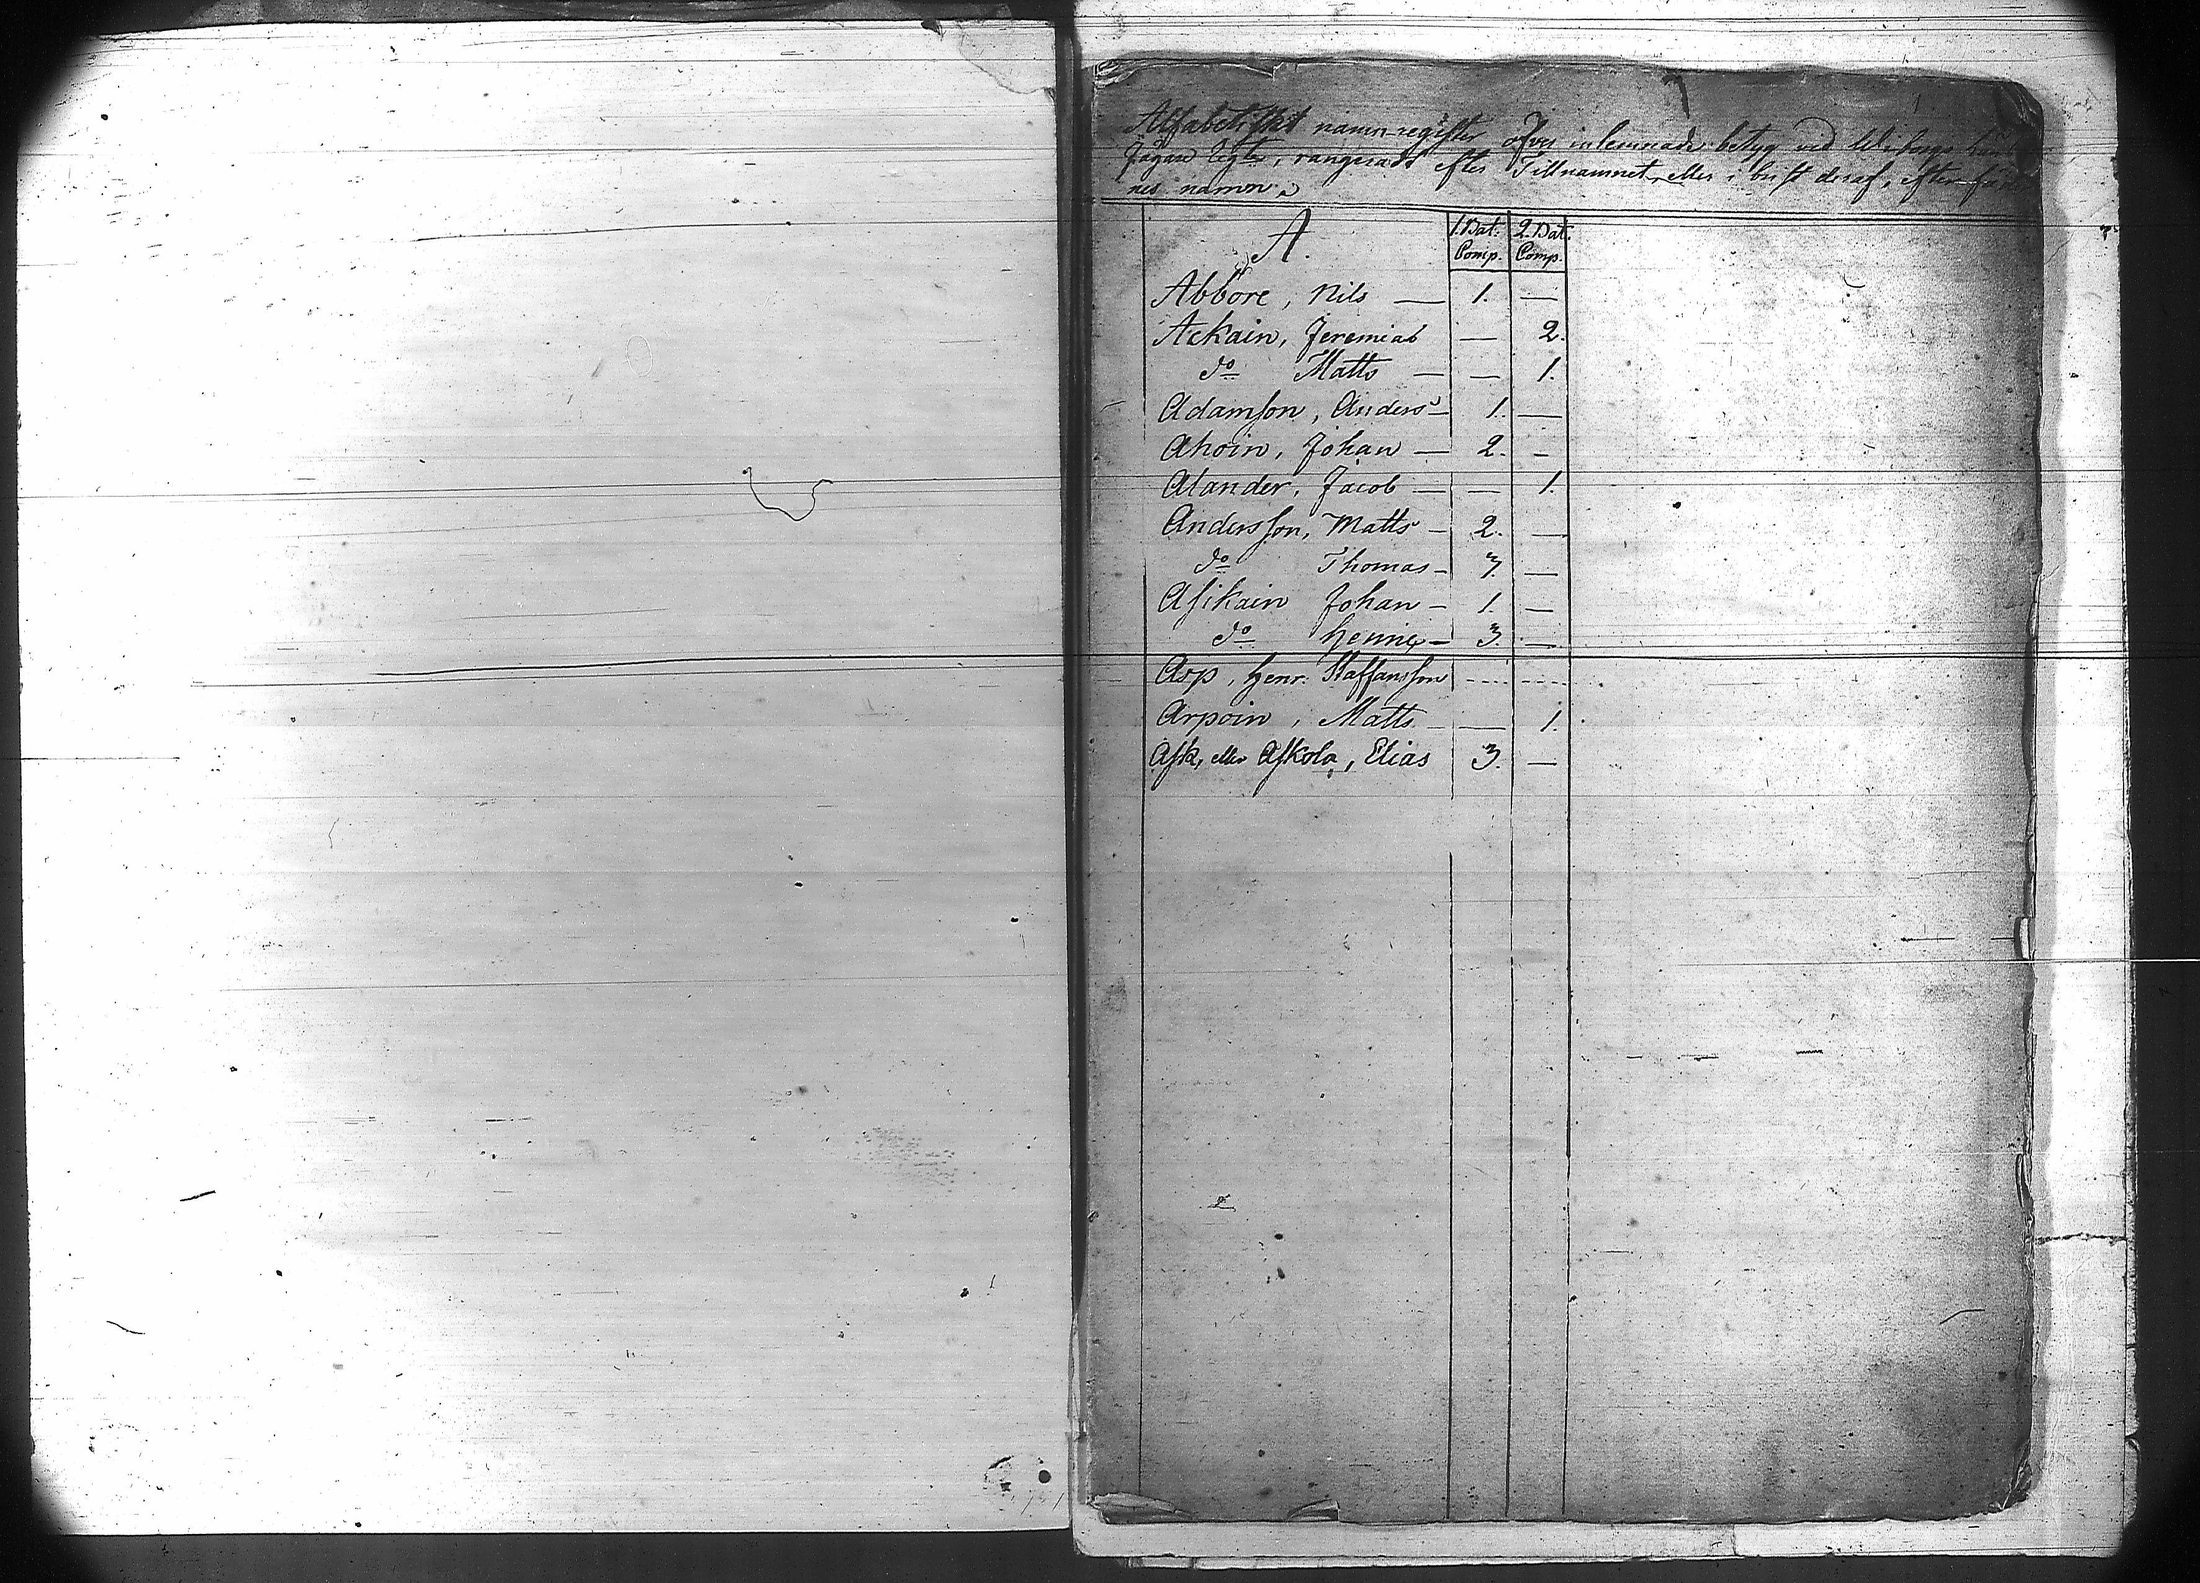 Alfabetiskt namn-register öfver inlemnade betyg vid Wiborgs
Jägare Regte, rangerade efter Tillnamnet, eller i brist deraf, efter
nes namn.
A. 1. Bat: Comp. 2. Bat. Comp.
Abbore, Nils — 1. —
Ackain, Jeremias — 2.
do Matts — — 1.
Adamsson, Anders — 1. —
Ahoin, Johan — 2. —
Alander, Jacob — — 1.
Andersson, Matts — 2. —
do Thomas — 3. —
Asikain Johan — 1. —
do Henric — 3. —
Asp, Henr. Staffansson
Arpoin, Matts — 1.
Ask, eller Askola, Elias 3. —